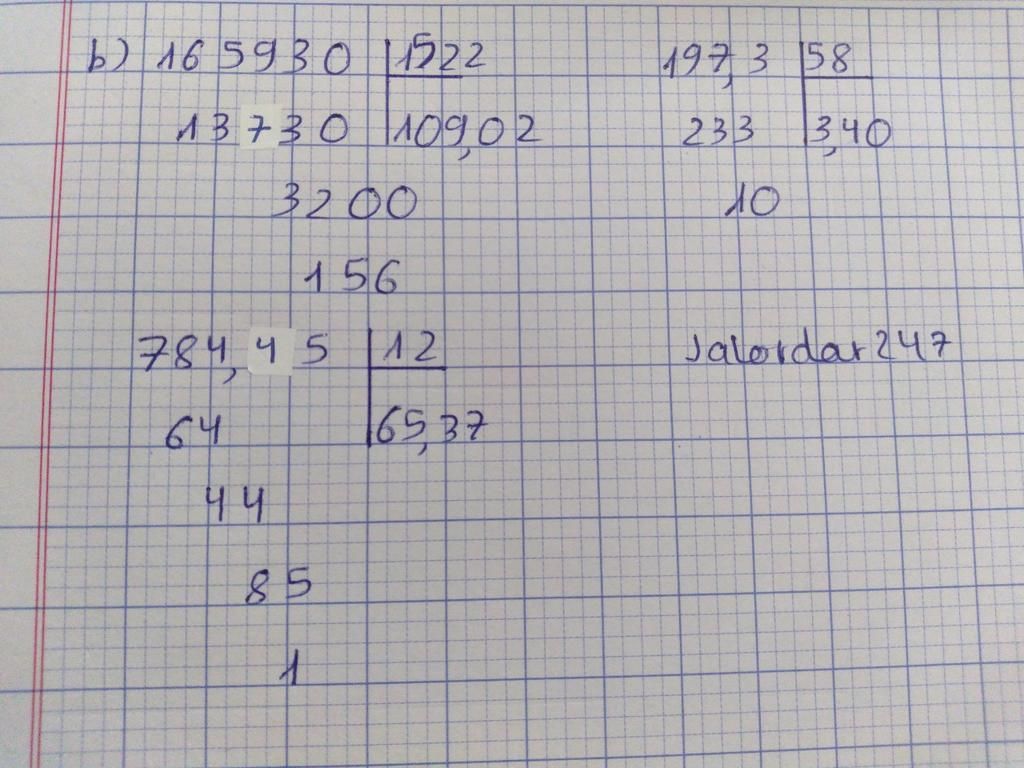 b) 165930 1522 197,3 58
13730 109,02 233 3,40
3200 10
156
784,45 12 Jalordar247
64 65,37
44
85
1